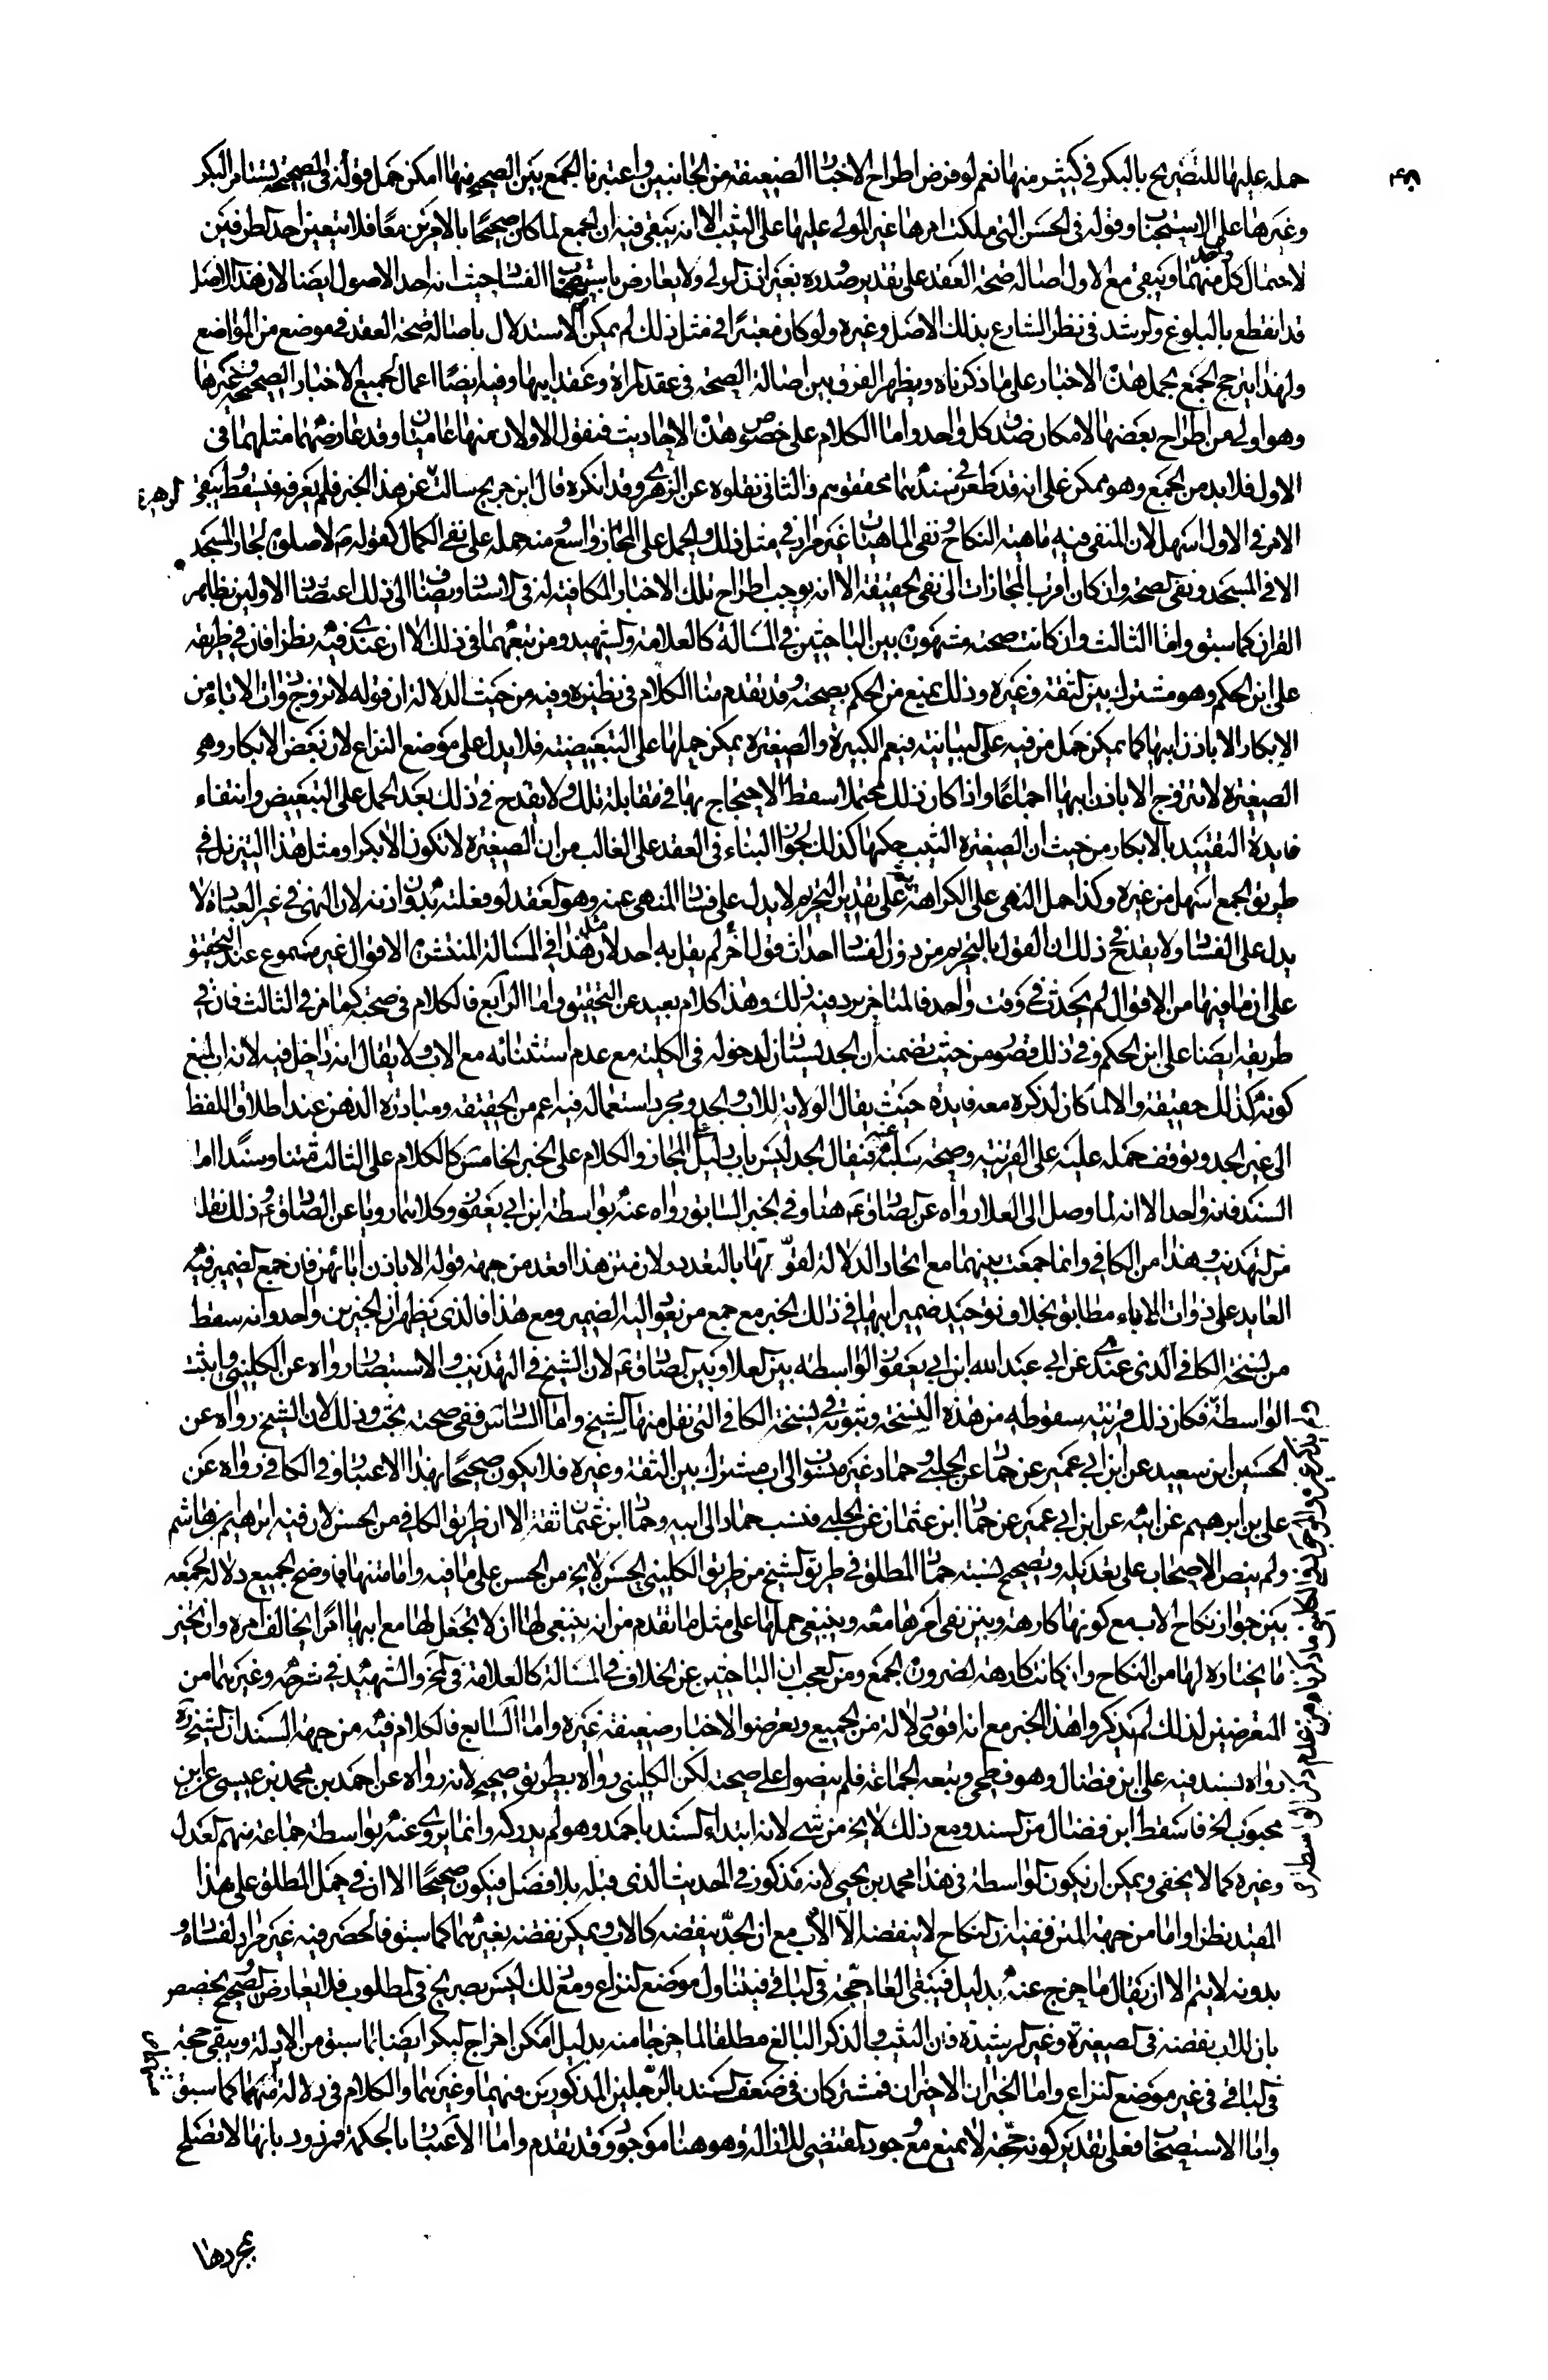 حمله عليها للتصريح بالبكر في كثير منها نعم لو فرض اطراح الاخبار الضعيفة من الجانبين واعتبرنا الجمع بين الصحيح منها امكن حمل قوله في الصحيحة تستامر البكر
وغيرها على الاستحباب وقوله في الحسن التي ملكت امرها غير المولى عليها على الثيب الا انه يبقى فيه ان الجمع لما كان صحيحا بالامرين معا فلا يتعين احد الطرفين
لاحتمال كل واحد منهما ويبقى مع الاول اصالة صحة العقد على تقدير صدوره بغير اذن الولي ولا يعارض باستصحاب الفساد حيث انه احد الاصول ايضا لان هذا الاصل
قد انقطع بالبلوغ والرشد في نظر الشارع بذلك الاصل وغيره ولو كان معتبرا في مثل ذلك لم يمكن الاستدلال باصالة صحة العقد في موضع من المواضع
ولهذا يترجح الجمع بحمل هذه الاخبار على ما ذكرناه ويظهر الفرق بين اصالة الصحة في عقد المراة وعقد ابيها وفيه ايضا اعمال لجميع الاخبار الصحيحة وغيرها
وهو اولى من اطراح بعضها لامكان صدق كل واحد واما الكلام على خصوص هذه الاحاديث فنقول الاولان منها عاميان وقد عارضهما مثلهما في
الاول فلا بد من الجمع وهو ممكن على انه قد طعن في سندهما محققوهم فالثاني نقلوه عن الزهري وقد انكره قال ابن جريج سالت الزهري عن هذا الخبر فلم يعرفه فيسقط ويبقى
الامر في الاول اسهل لان المنفي فيه ماهية النكاح ونفي الماهيات غير مراد في مثل ذلك والحمل على المجاز واسع منه حمله على نفي الكمال كقوله ص لا صلوة لجار المسجد
الا في المسجد ونفي الصحة وان كان اقرب المجازات الى نفي الحقيقة الا انه يوجب اطراح تلك الاخبار المكافية له في الاسناد ويضاف الى ذلك اعتضاد الاولين بظاهر
القران كما سبق واما الثالث وان كانت صحته مشهورة بين الباحثين في المسالة كالعلامة والشهيد ومن تبعهما في ذلك الا ان عندي فيه نظرا فان في طريقه
على ابن الحكم وهو مشترك بين الثقة وغيره وذلك يمنع من الحكم بصحته وقد تقدم منا الكلام في نظيره وفيه من حيث الدلالة ان قوله لا تزوج ذوات الاباء من
الابكار الا باذن ابيها كما يمكن حمل من فيه على البيانية فيعم الكبيرة والصغيرة يمكن حملها على التبعيضية فلا يدل على موضع النزاع لان بعض الابكار وهي
الصغيرة لا تتزوج الا باذن ابيها اجماعا واذا كان ذلك محتملا سقط الاحتجاج بها في مقابلة تلك ولا يقدح في ذلك بعد الحمل على التبعيض وانتفاء
فايدة التقييد بالابكار من حيث ان الصغيرة الثيب حكمها كذلك لجواز البناء في العقد على الغالب من ان الصغيرة لا تكون الا بكرا ومثل هذا التنزيل في
طريق الجمع اسهل من غيره وكذا حمل النهي على الكراهة بل على تقدير التحريم لا يدل على فساد المنهي عنه وهو العقد لو فعلته بدون اذنه لان النهي في غير العبادة لا
يدل على الفساد ولا يقدح في ذلك ان القول بالتحريم من دون الفساد احداث قول اخر لم يقل به احد لان مثل هذا في المسالة المنتشرة الاقوال غير مسموع عند التحقيق
على ان ما فيها من الاقوال لم يحدث في وقت واحد فالمتاخر يرد فيه ذلك وهذا كلام بعيد عن التحقيق واما الرابع فالكلام في صحته كما مر في الثالث فان في
طريقه ايضا على ابن الحكم وفي ذلك قصور من حيث تضمنه ان الجد يستاذن لدخوله في الكلية مع عدم استثنائه مع الاب ولا يقال انه داخل فيه لانه ان لمنع
كونه كذلك حقيقة والا لما كان لذكره معه فايدة حيث يقال الولاية للاب والجد ومجرد استعماله فيه اعم من الحقيقة ومبادرة الذهن عند اطلاق اللفظ
الى غير الجد وتوقف حمله عليه على القرينة وصحة سلبه عنه فيقال الجد ليس باب دليل المجاز والكلام على الخبر الخامس كالكلام على الثالث متنا وسندا اما
السند فانه واحد الا انه لما وصل الى العلا رواه عن الصادق ع هنا وفي الخبر السابق رواه عنه بواسطة ابن ابي يعفور وكلاهما رويا عن الصادق ع وذلك نقل
من التهذيب وهذا من الكافي وانما جمعت بينهما مع اتحاد الدلالة لقوتهما بالتعدد ولان متن هذا اقعد من جهة قوله الا باذن ابائهن فان جمع الضمير فيه
العايد على ذوات الاباء مطابق بخلاف توحيد ضمير ابيها في ذلك الخبر مع جمع من يعود اليه الضمير ومع هذا فالذي يظهر ان الخبرين واحد وانه سقط
من نسخة الكافي الذي عندي عن ابي عبد الله ابن ابي يعفور الواسطة بين العلا وبين الصادق ع لان الشيخ في التهذيب والاستبصار رواه عن الكليني واثبت
الواسطة فكان ذلك قرينة سقوطه من هذه النسخة وثبوته في نسخة الكافي التي نقل منها الشيخ واما السادس ففي صحته بحث وذلك لان الشيخ رواه عن
الحسين ابن سعيد عن ابن ابي عمير عن حماد عن الحلبي وحماد غير منسوب الى اب مشترك بين الثقة وغيره فلا يكون صحيحا بهذا الاعتبار وفي الكافي رواه عن
علي بن ابرهيم عن ابيه عن ابن ابي عمير عن حماد ابن عثمان عن الحلبي فنسب حماد الى ابيه وحماد ابن عثمان ثقة الا ان طريق الكافي من الحسن لان فيه ابرهيم بن هاشم
ولم ينص الاصحاب على تعديله وتصحيح نسبة حماد المطلق في طريق الشيخ من طريق الكليني الحسن لا يخ من الحسن على ما فيه واما متنها فاوضح الجميع دلالة لجمعه
بين جواز نكاح الاب مع كونها كارهة وبين نفي امرها معه وينبغي حملها على مثل ما تقدم من انه ينبغي لها ان لا تجعل لها مع ابيها امرا يخالف امره وان تختر
ما يختاره لها من النكاح وان كانت كارهة لضرورة الجمع ومن العجب ان الباحثين عن الخلاف في المسالة كالعلامة في لف والشهيد في شرحه وغيرهما من
المتعرضين لذلك لم يذكروا هذا الخبر مع انه اقوى دلالة من الجميع وتعرضوا لاخبار ضعيفة غيره واما السابع فالكلام فيه من جهة السند ان الشيخ ره
رواه بسند فيه على ابن فضال وهو فطحي وتبعه الجماعة فلم ينصوا على صحته لكن الكليني رواه بطريق صحيح لانه رواه عن احمد بن محمد بن عيسى عن ابن
محبوب الخ فاسقط ابن فضال من السند ومع ذلك لا يخ من شي لانه ابتداء السند باحمد وهو لم يدركه وانما يروي عنه بواسطة جماعة منهم العدل
وغيره كما لا يخفى ويمكن ان يكون الواسطة في هذا محمد بن يحيى لانه مذكور في الحديث الذي قبله بلا فصل فيكون صحيحا الا ان في حمل المطلق على هذا
المقيد نظرا واما من جهة المتن ففيه ان النكاح لا ينقضه الا الاب مع ان الجد ينقضه كالاب ويمكن نقضه بغيرهما كما سبق فالحصر فيه غير مراد لفساده و
بدونه لا يتم الا ان يقال ما خرج عنه بدليل فيبقى العام حجة في الباقي فيتناول موضع النزاع ومع ذلك ليس بصريح في المطلوب فلا يعارض الصحيح لتخصيصه
بان للاب نقضه في الصغيرة وغير الرشيدة فان الثيب والذكر البالغ مطلقا لما خرجا منه بدليل امكن اخراج البكر ايضا بما سبق من الادلة ويبقى حجة
في الباقي في غير موضع النزاع واما الخبران الاخيران فمشتركان في ضعف السند بالرجلين المذكورين فيهما وغيرهما والكلام في دلالة متنهما كما سبق
واما الاستصحاب فعلى تقدير كونه حجة لا يمنع مع وجود المقتضي للازالة وهو هنا موجود وقد تقدم واما الاعتبار بالحكمة فمردود بانها لا تصلح
بمجردها